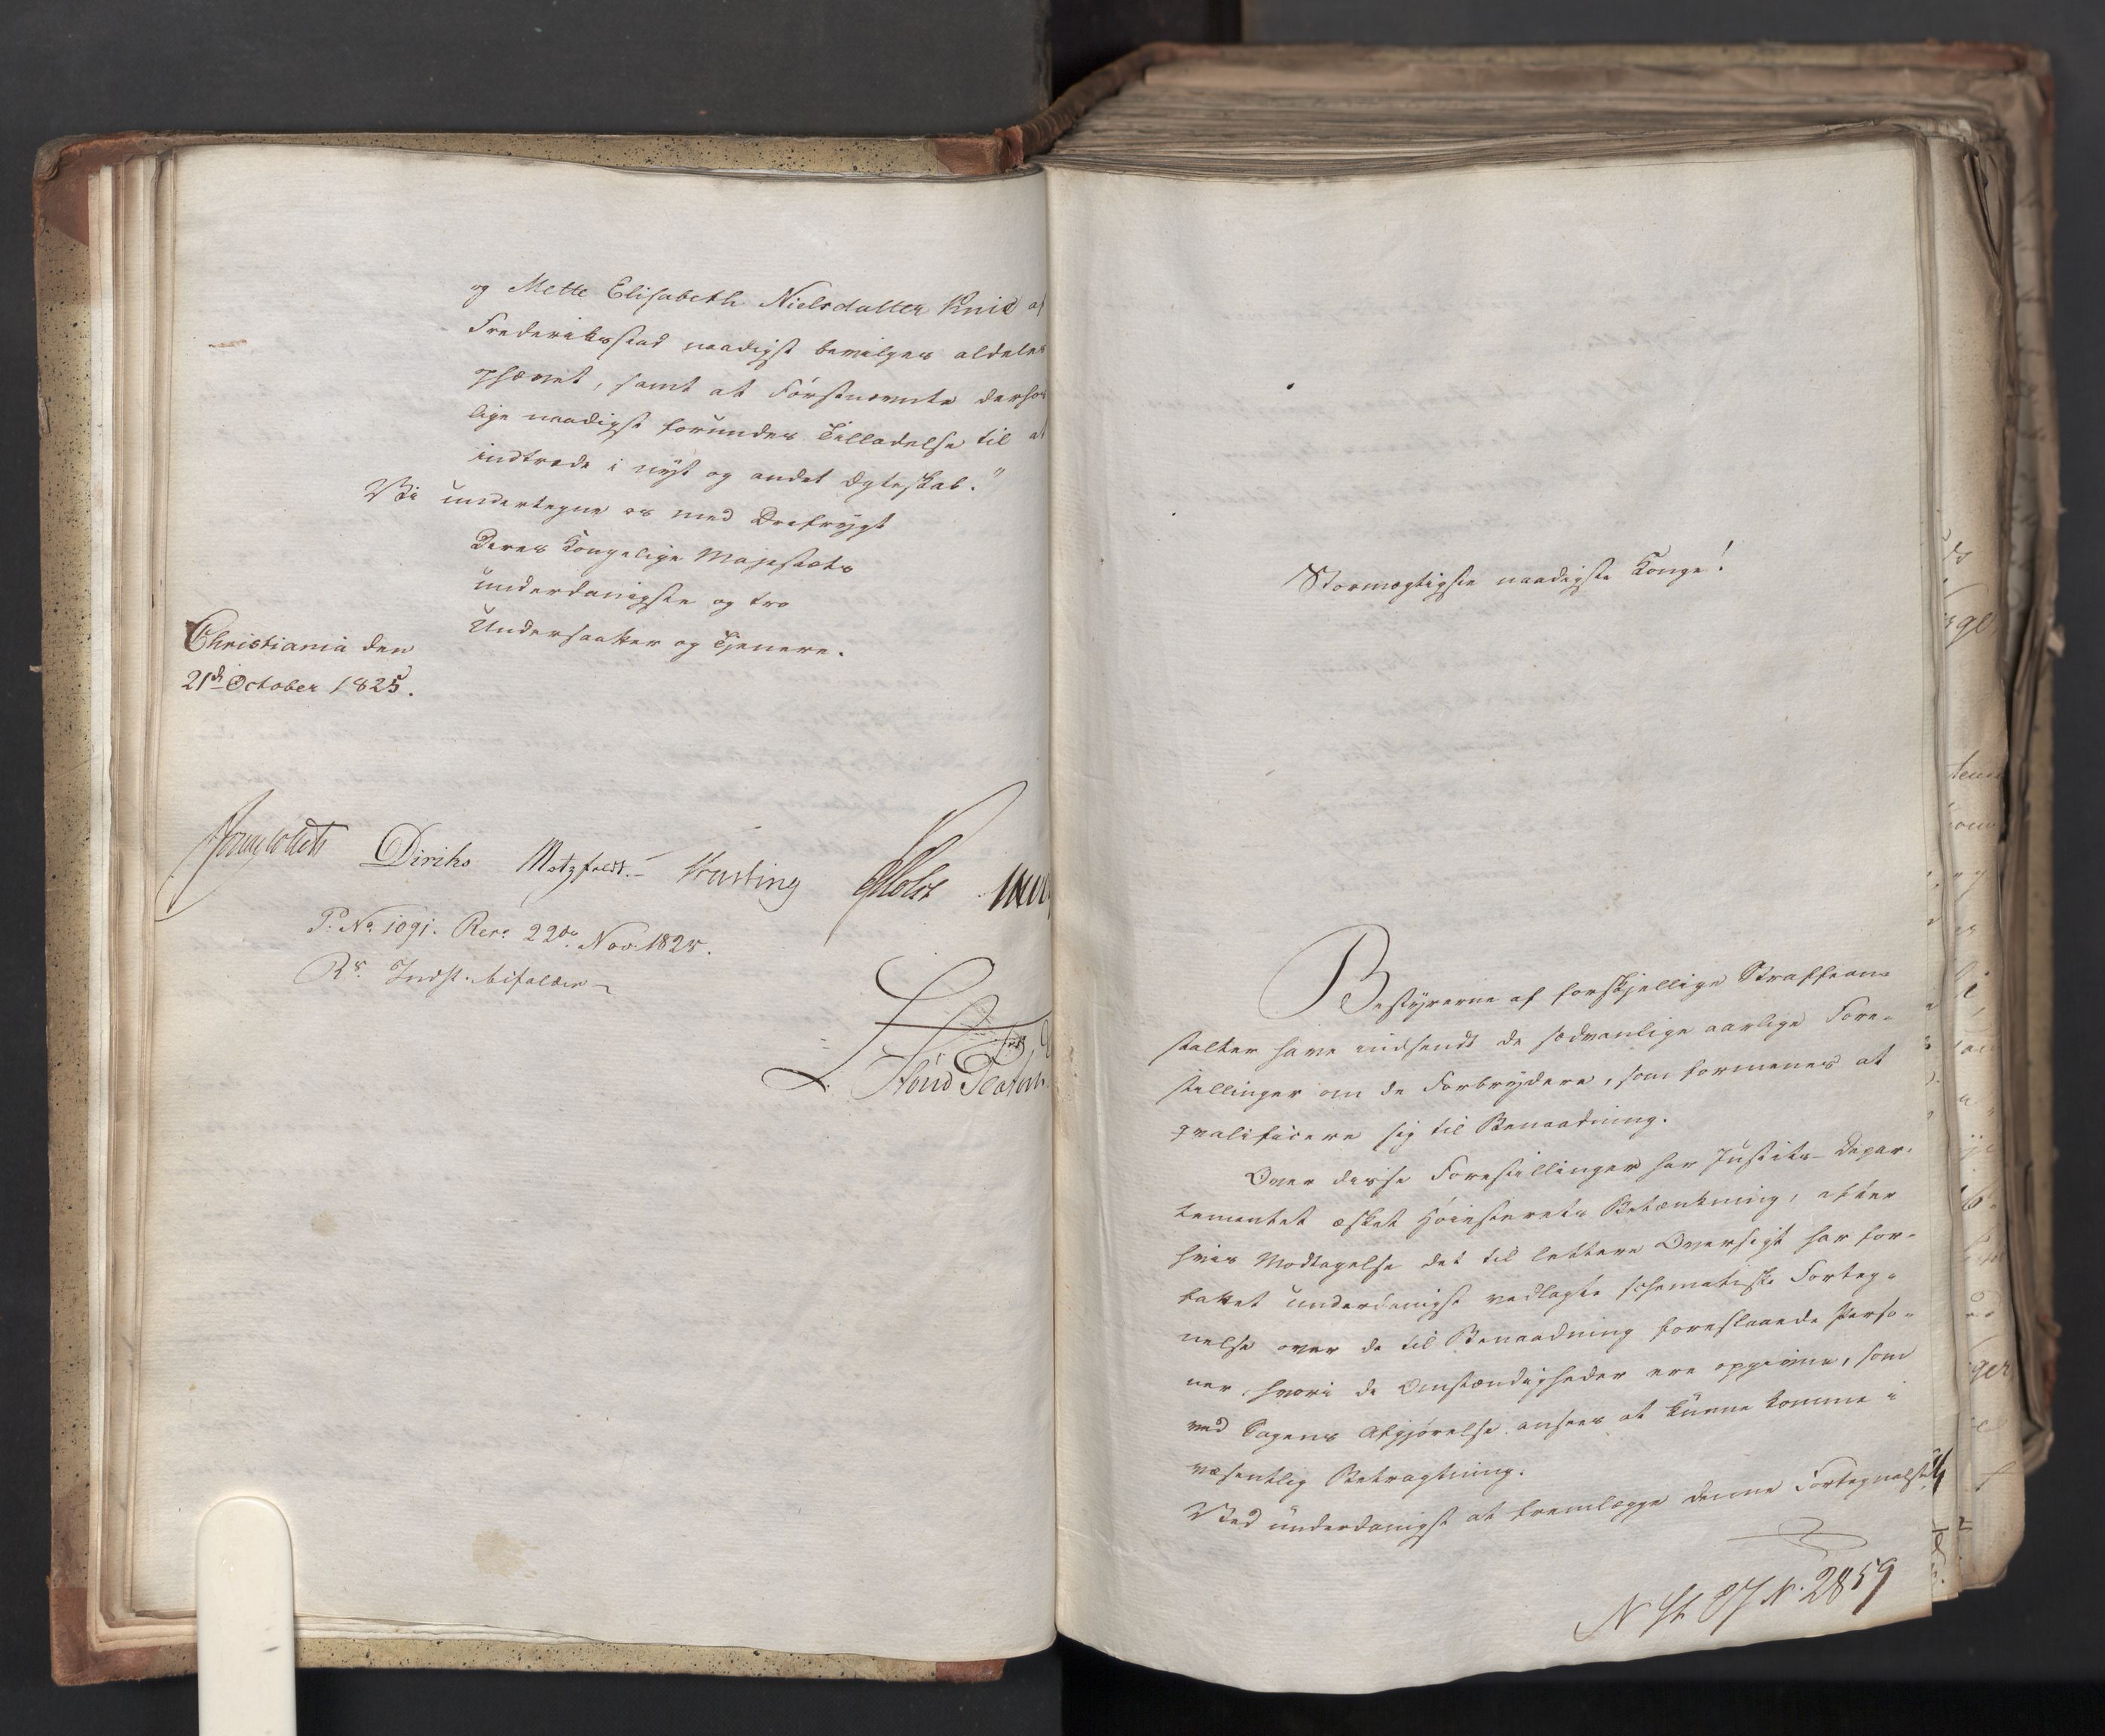 og Mette Elisabeth Nielsdatter Knid af
Frederiksstad naadigst bevilges aldeles
ophævet, samt at Førstnævnte derhos
lige naadigst forundes Tilladelse til at
indtræde i nyt og andet Ægteskab."
Vi undertegne os med Ærefrygt
Deres Kongelige Majestæts
underdanigste og tro
Undersaatter og Tjenere.
Christiania den
21de October 1825.
Diriks Motzfeldt. Krefting Holst
P. No 1091. Rere 22de Nov 1825.
Rs. Indst. bifaldes
Stormægtigste naadigste Konge!
Bestyrerne af forskjellige Straffean-
stalter have indsendt de sædvanlige aarlige Fore-
stillinger om de Forbrydere, som formenes at
qvalificere sig til Benaadning.
Over disse Forestillinger har Justits-Depar-
tementet æsket Høiesterets Betænkning, efter
hvis Modtagelse det til lettere Oversigt har for-
fattet underdanigst vedlagte schematiske Forteg-
nelse over de til Benaadning foreslaaede Perso-
ner, hvori de Omstændigheder ere opgivne, som
ved Sagens Afgjørelse ansees at kunne komme i
væsentlig Betragtning.
Ved underdanigst at fremlægge denne Fortegnelse
N. 2859